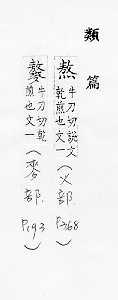 類篇
熬
牛刀切說文
乾煎也文一
(火部.
P.368)
䵅
牛刀切乾
煎也文一
(麥部.
P.193)